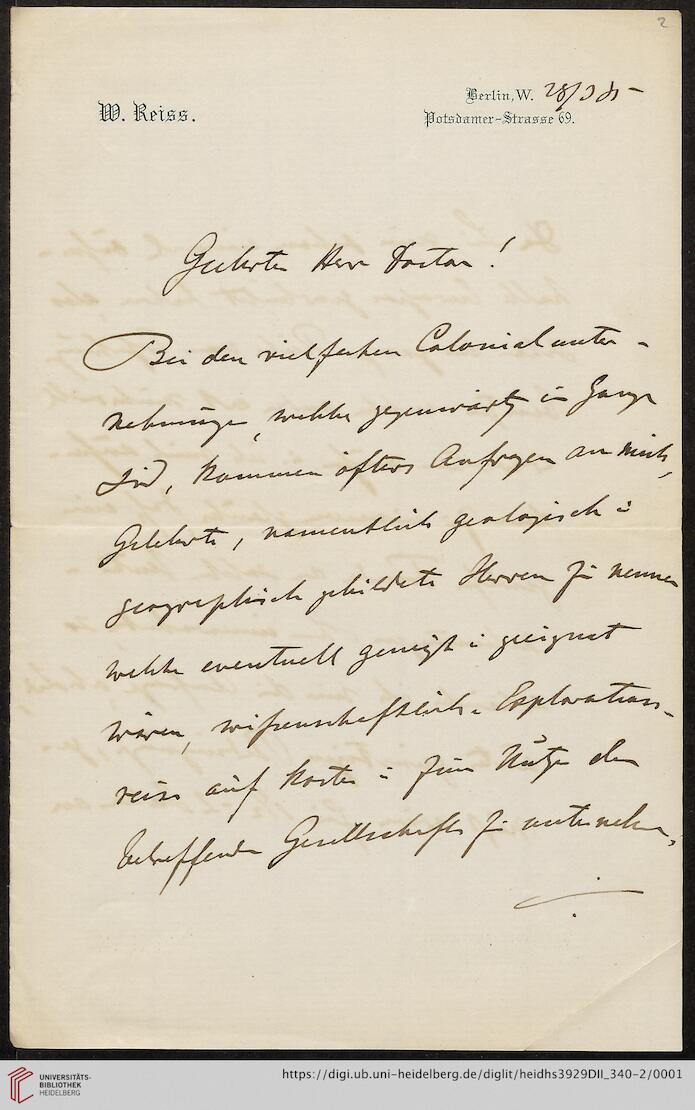 2
W. Reiss.
Berlin, W. 28/3 85
Potsdamer-Strasse 69.
Geehrter Herr Doctor!
Bei den vielfachen Colonialunter-
nehmungen, welche gegenwärtig in Gange
sind, kommen öfters Anfragen an mich,
Gelehrte, namentlich geologisch u
geographisch gebildete Herren zu nennen
welche eventuell geneigt u geeignet
wären, wissenschaftliche Explorations-
reisen auf Kosten u zum Nutzen der
betreffenden Gesellschaften zu unternehmen,
UNIVERSITÄTS-
BIBLIOTHEK
HEIDELBERG
https://digi.ub.uni-heidelberg.de/diglit/heidhs3929DII_340-2/0001